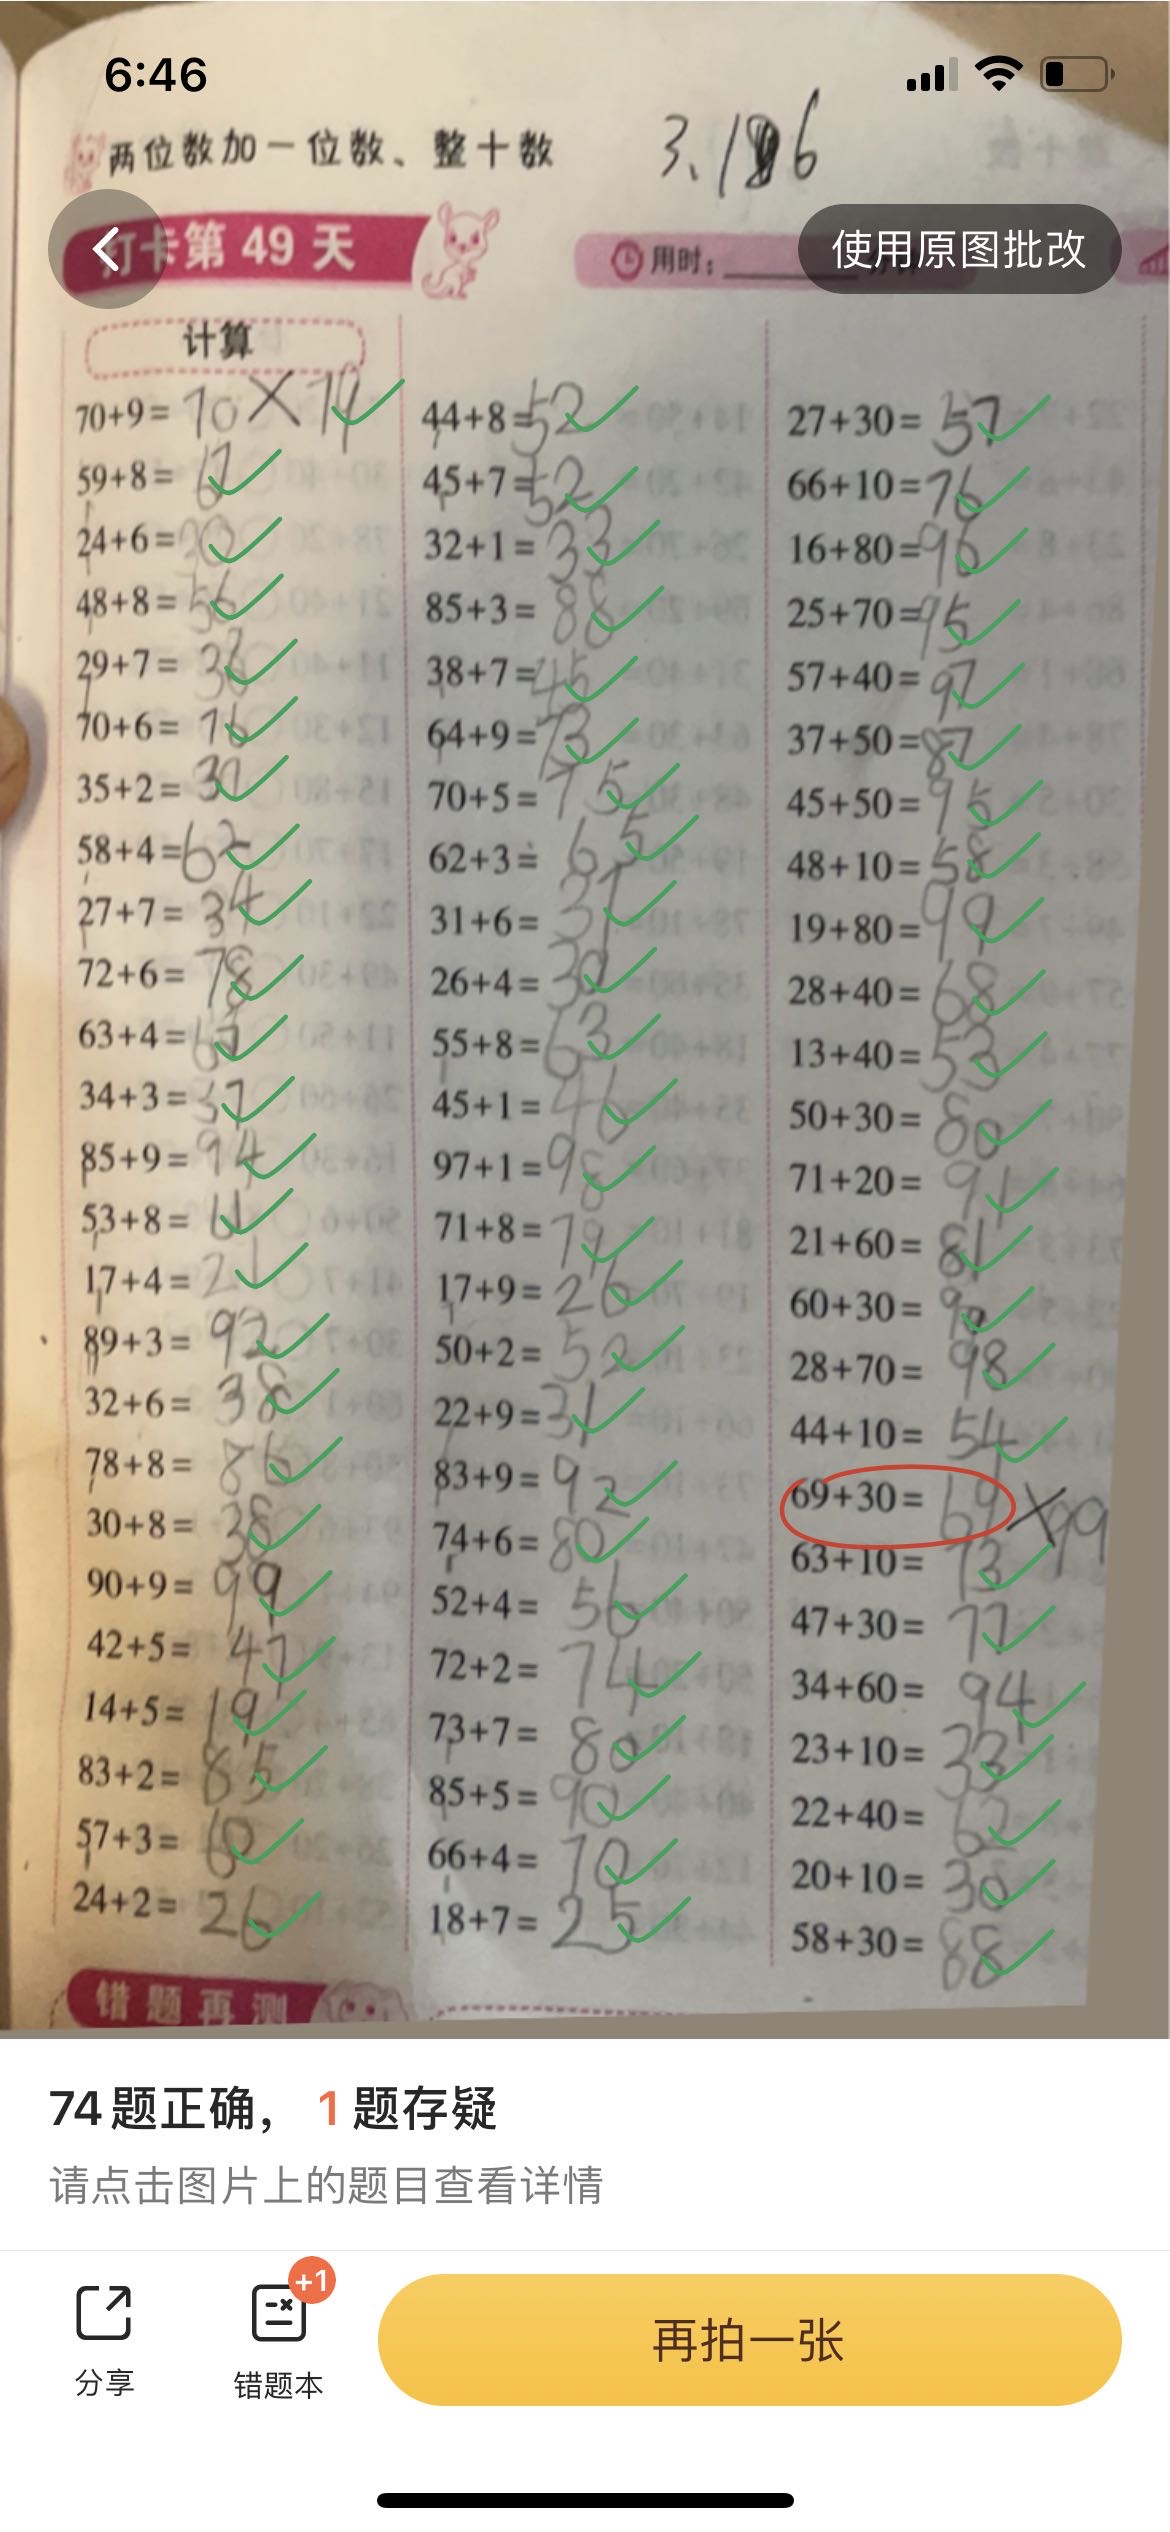 6:46
两位数加一位数、整十数 3.1 6
打卡第 49 天
用时:
使用原图批改
计算
70+9= 70 × 79
59+8= 67
24+6= 30
48+8= 56
29+7= 36
70+6= 76
35+2= 37
58+4= 62
27+7= 34
72+6= 78
63+4= 67
34+3= 37
85+9= 94
53+8= 61
17+4= 21
89+3= 92
32+6= 38
78+8= 86
30+8= 38
90+9= 99
42+5= 47
14+5= 19
83+2= 85
57+3= 60
24+2= 26
44+8= 52
45+7= 52
32+1= 33
85+3= 88
38+7= 45
64+9= 73
70+5= 75
62+3= 65
31+6= 37
26+4= 30
55+8= 63
45+1= 46
97+1= 98
71+8= 79
17+9= 26
50+2= 52
22+9= 31
83+9= 92
74+6= 80
52+4= 56
72+2= 74
73+7= 80
85+5= 90
66+4= 70
18+7= 25
27+30= 57
66+10= 76
16+80= 96
25+70= 95
57+40= 97
37+50= 87
45+50= 95
48+10= 58
19+80= 99
28+40= 68
13+40= 53
50+30= 80
71+20= 91
21+60= 81
60+30= 90
28+70= 98
44+10= 54
69+30= 69 × 99
63+10= 73
47+30= 77
34+60= 94
23+10= 33
22+40= 62
20+10= 30
58+30= 88
错题再测
74题正确， 1题存疑
请点击图片上的题目查看详情
分享
+1
错题本
再拍一张